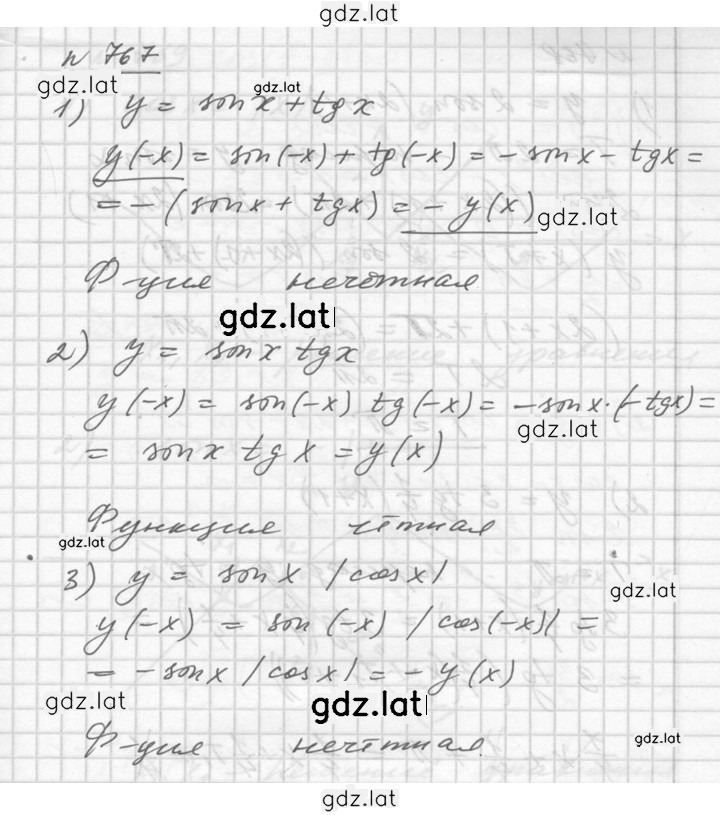 gdz.lat
n 767
gdz.lat
gdz.lat
1) y = sin x + tg x
y(-x) = sin(-x) + tg(-x) = - sin x - tg x =
= - (sin x + tg x) = - y(x)
gdz.lat
Ф-ция нечётная
gdz.lat
2) y = sin x tg x
y(-x) = sin(-x) tg(-x) = - sin x · (- tg x) =
gdz.lat
= sin x tg x = y(x)
Функция чётная
gdz.lat
3) y = sin x |cos x|
gdz.lat
y(-x) = sin (-x) |cos(-x)| =
= - sin x |cos x| = - y(x)
gdz.lat
gdz.lat
Ф-ция нечётная
gdz.lat
gdz.lat